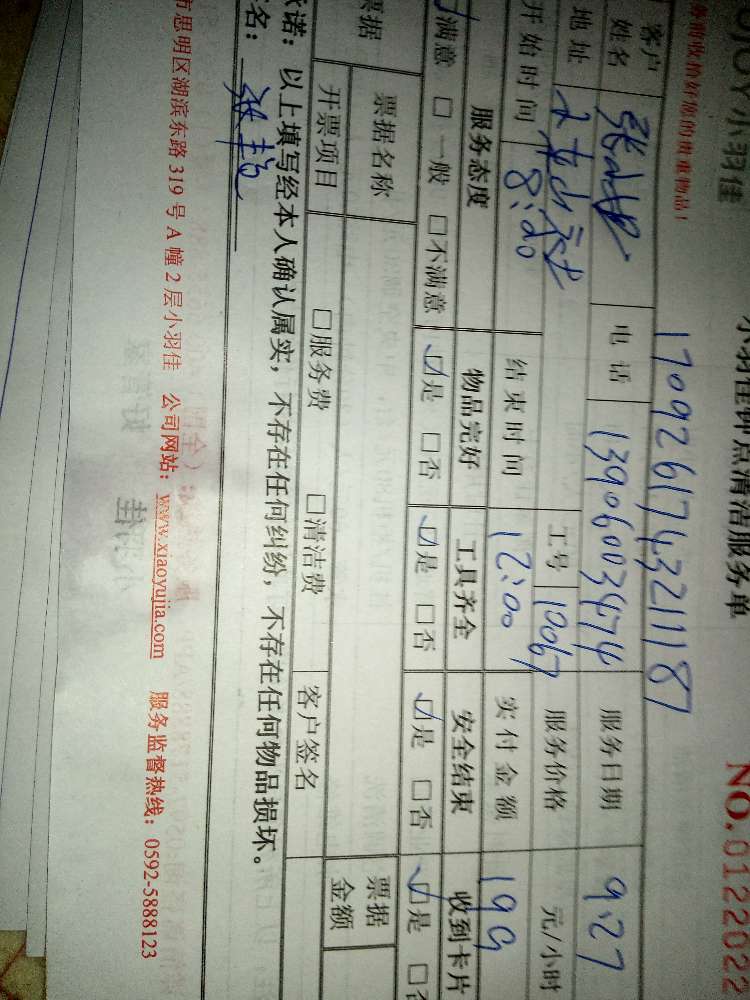 JOY小羽佳
小羽佳钟点清洁服务单
NO.0122022
收拾好您的贵重物品！
1709261743211187
客户姓名 电话 13906003474 服务日期 9.27
地址 工号 10067 服务价格 元/小时
开始时间 8:20 结束时间 12:00 实付金额 199
服务态度 物品完好 工具齐全 安全结束 收到卡片
☑满意 □一般 □不满意 ☑是 □否 ☑是 □否 ☑是 □否 ☑是 □否
票据 票据名称 票据金额
开票项目 □服务费 □清洁费 客户签名
承诺：以上填写经本人确认属实，不存在任何纠纷，不存在任何物品损坏。
名：
市思明区湖滨东路319号A幢2层小羽佳 公司网站：www.xiaoyujia.com 服务监督热线：0592-5888123